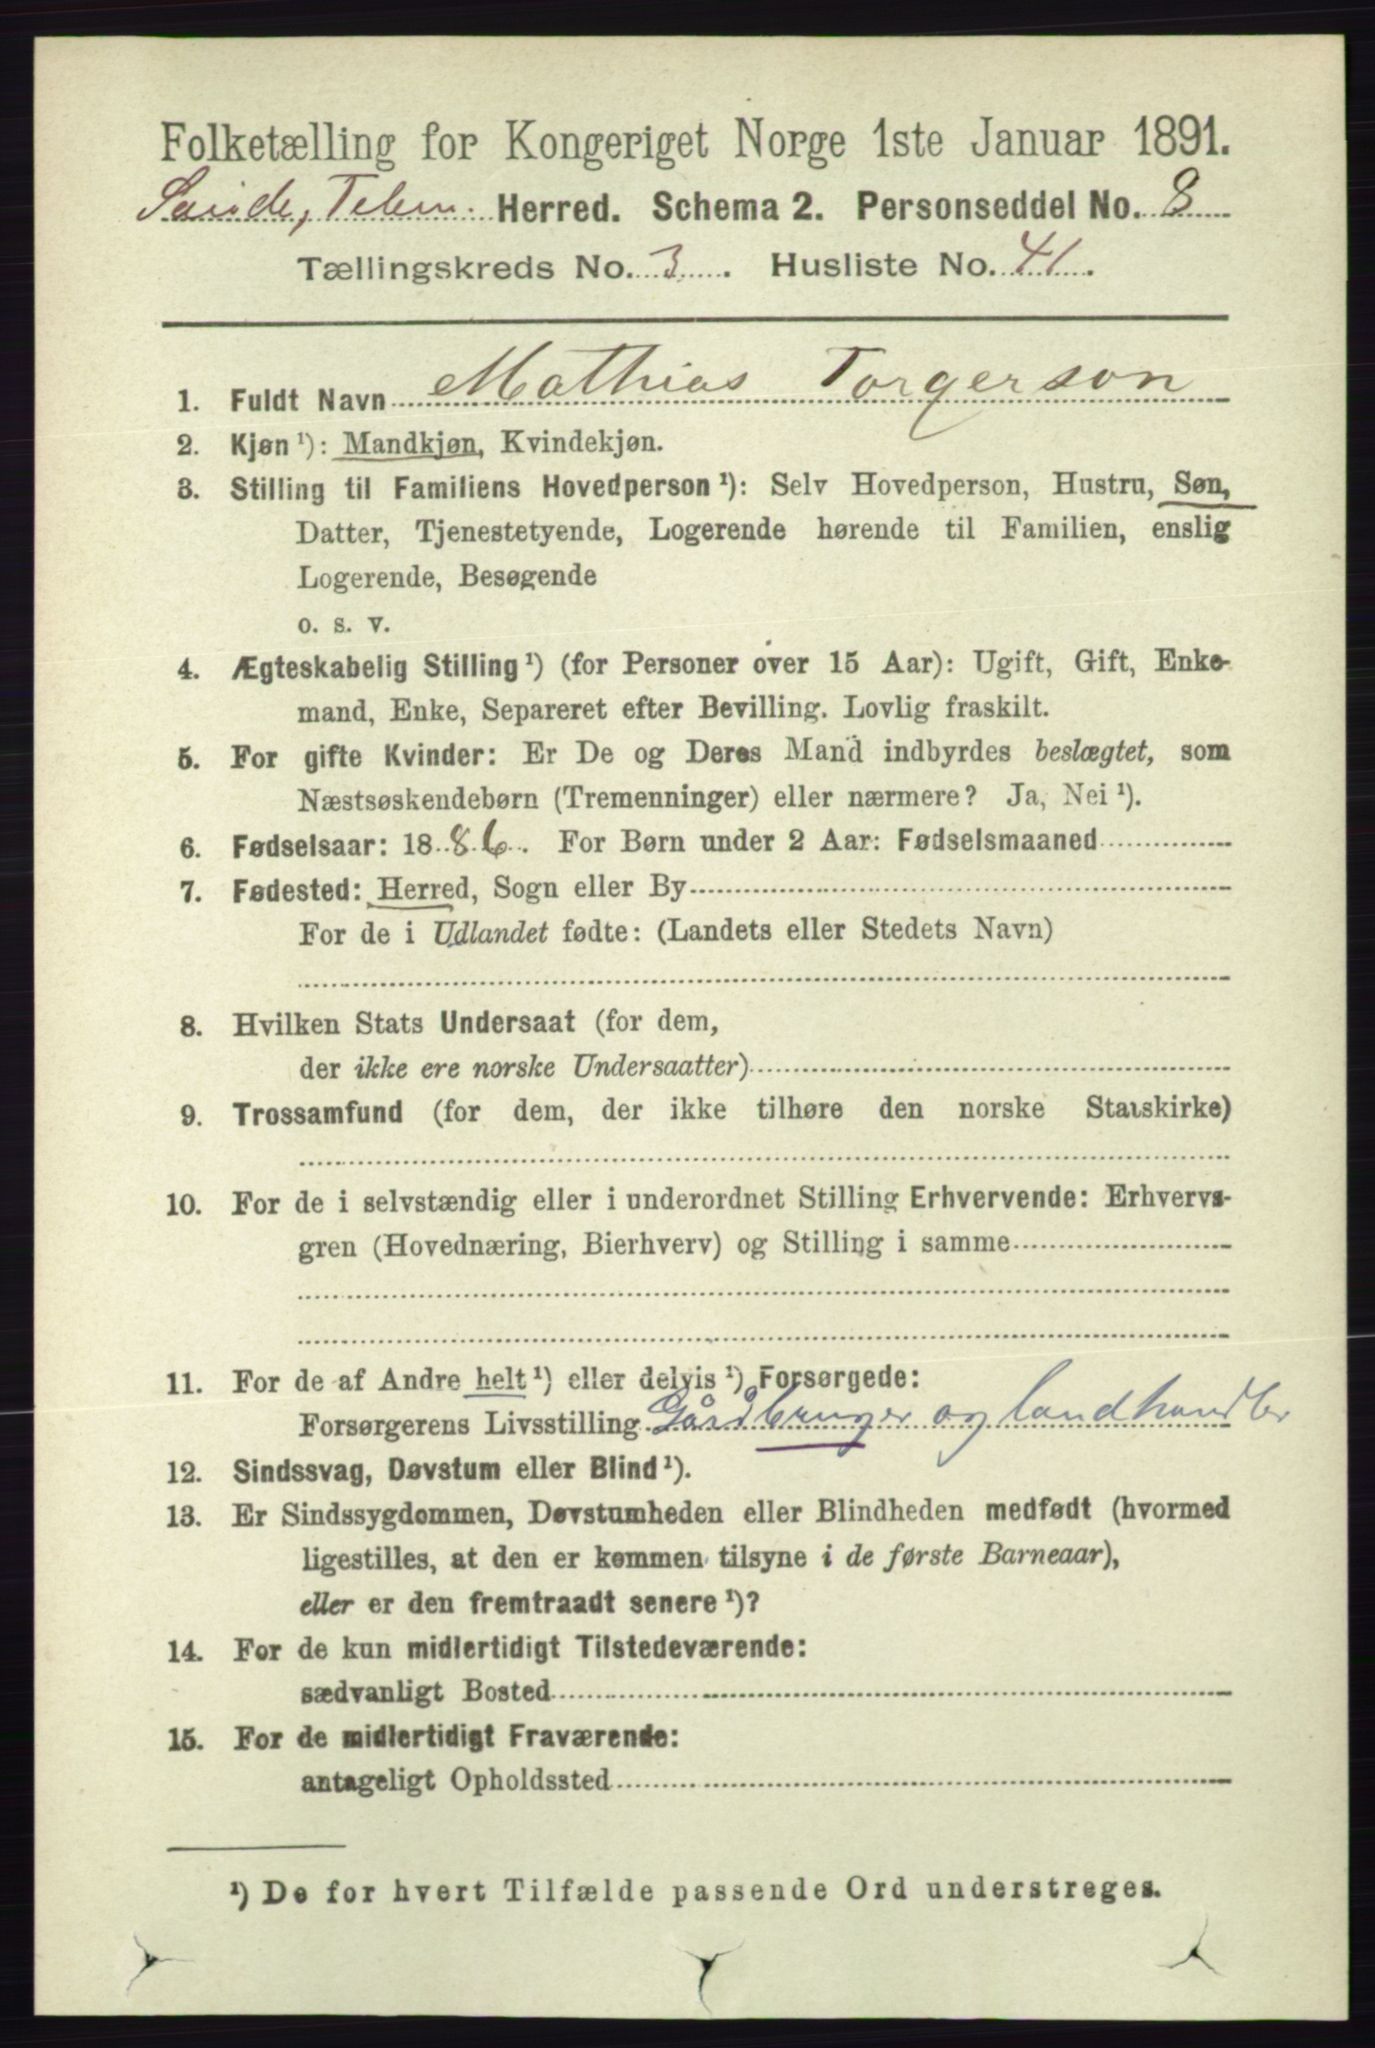 Folketælling for Kongeriget Norge 1ste Januar 1891.
Saude, Telem. Herred. Schema 2. Personseddel No. 8
Tællingskreds No. 3. Husliste No. 41.
1. Fuldt Navn Mathias Torgerson
2. Kjøn¹): Mandkjøn, Kvindekjøn.
3. Stilling til Familiens Hovedperson¹): Selv Hovedperson, Hustru, Søn,
Datter, Tjenestetyende, Logerende hørende til Familien, enslig
Logerende, Besøgende
o. s. v.
4. Ægteskabelig Stilling¹) (for Personer over 15 Aar): Ugift, Gift, Enke-
mand, Enke, Separeret efter Bevilling. Lovlig fraskilt.
5. For gifte Kvinder: Er De og Deres Mand indbyrdes beslægtet, som
Næstsøskendebørn (Tremenninger) eller nærmere? Ja, Nei¹).
6. Fødselsaar: 1886. For Børn under 2 Aar: Fødselsmaaned
7. Fødested: Herred, Sogn eller By
For de i Udlandet fødte: (Landets eller Stedets Navn)
8. Hvilken Stats Undersaat (for dem,
der ikke ere norske Undersaatter)
9. Trossamfund (for dem, der ikke tilhøre den norske Statskirke)
10. For de i selvstændig eller i underordnet Stilling Erhvervende: Erhvervs-
gren (Hovednæring, Bierhverv) og Stilling i samme
11. For de af Andre helt¹) eller delvis¹) Forsørgede:
Forsørgerens Livsstilling Gårdbruger og landhandler
12. Sindssvag, Døvstum eller Blind¹).
13. Er Sindssygdommen, Døvstumheden eller Blindheden medfødt (hvormed
ligestilles, at den er kommen tilsyne i de første Barneaar),
eller er den fremtraadt senere¹)?
14. For de kun midlertidigt Tilstedeværende:
sædvanligt Bosted
15. For de midlertidigt Fraværende:
antageligt Opholdssted
¹) De for hvert Tilfælde passende Ord understreges.